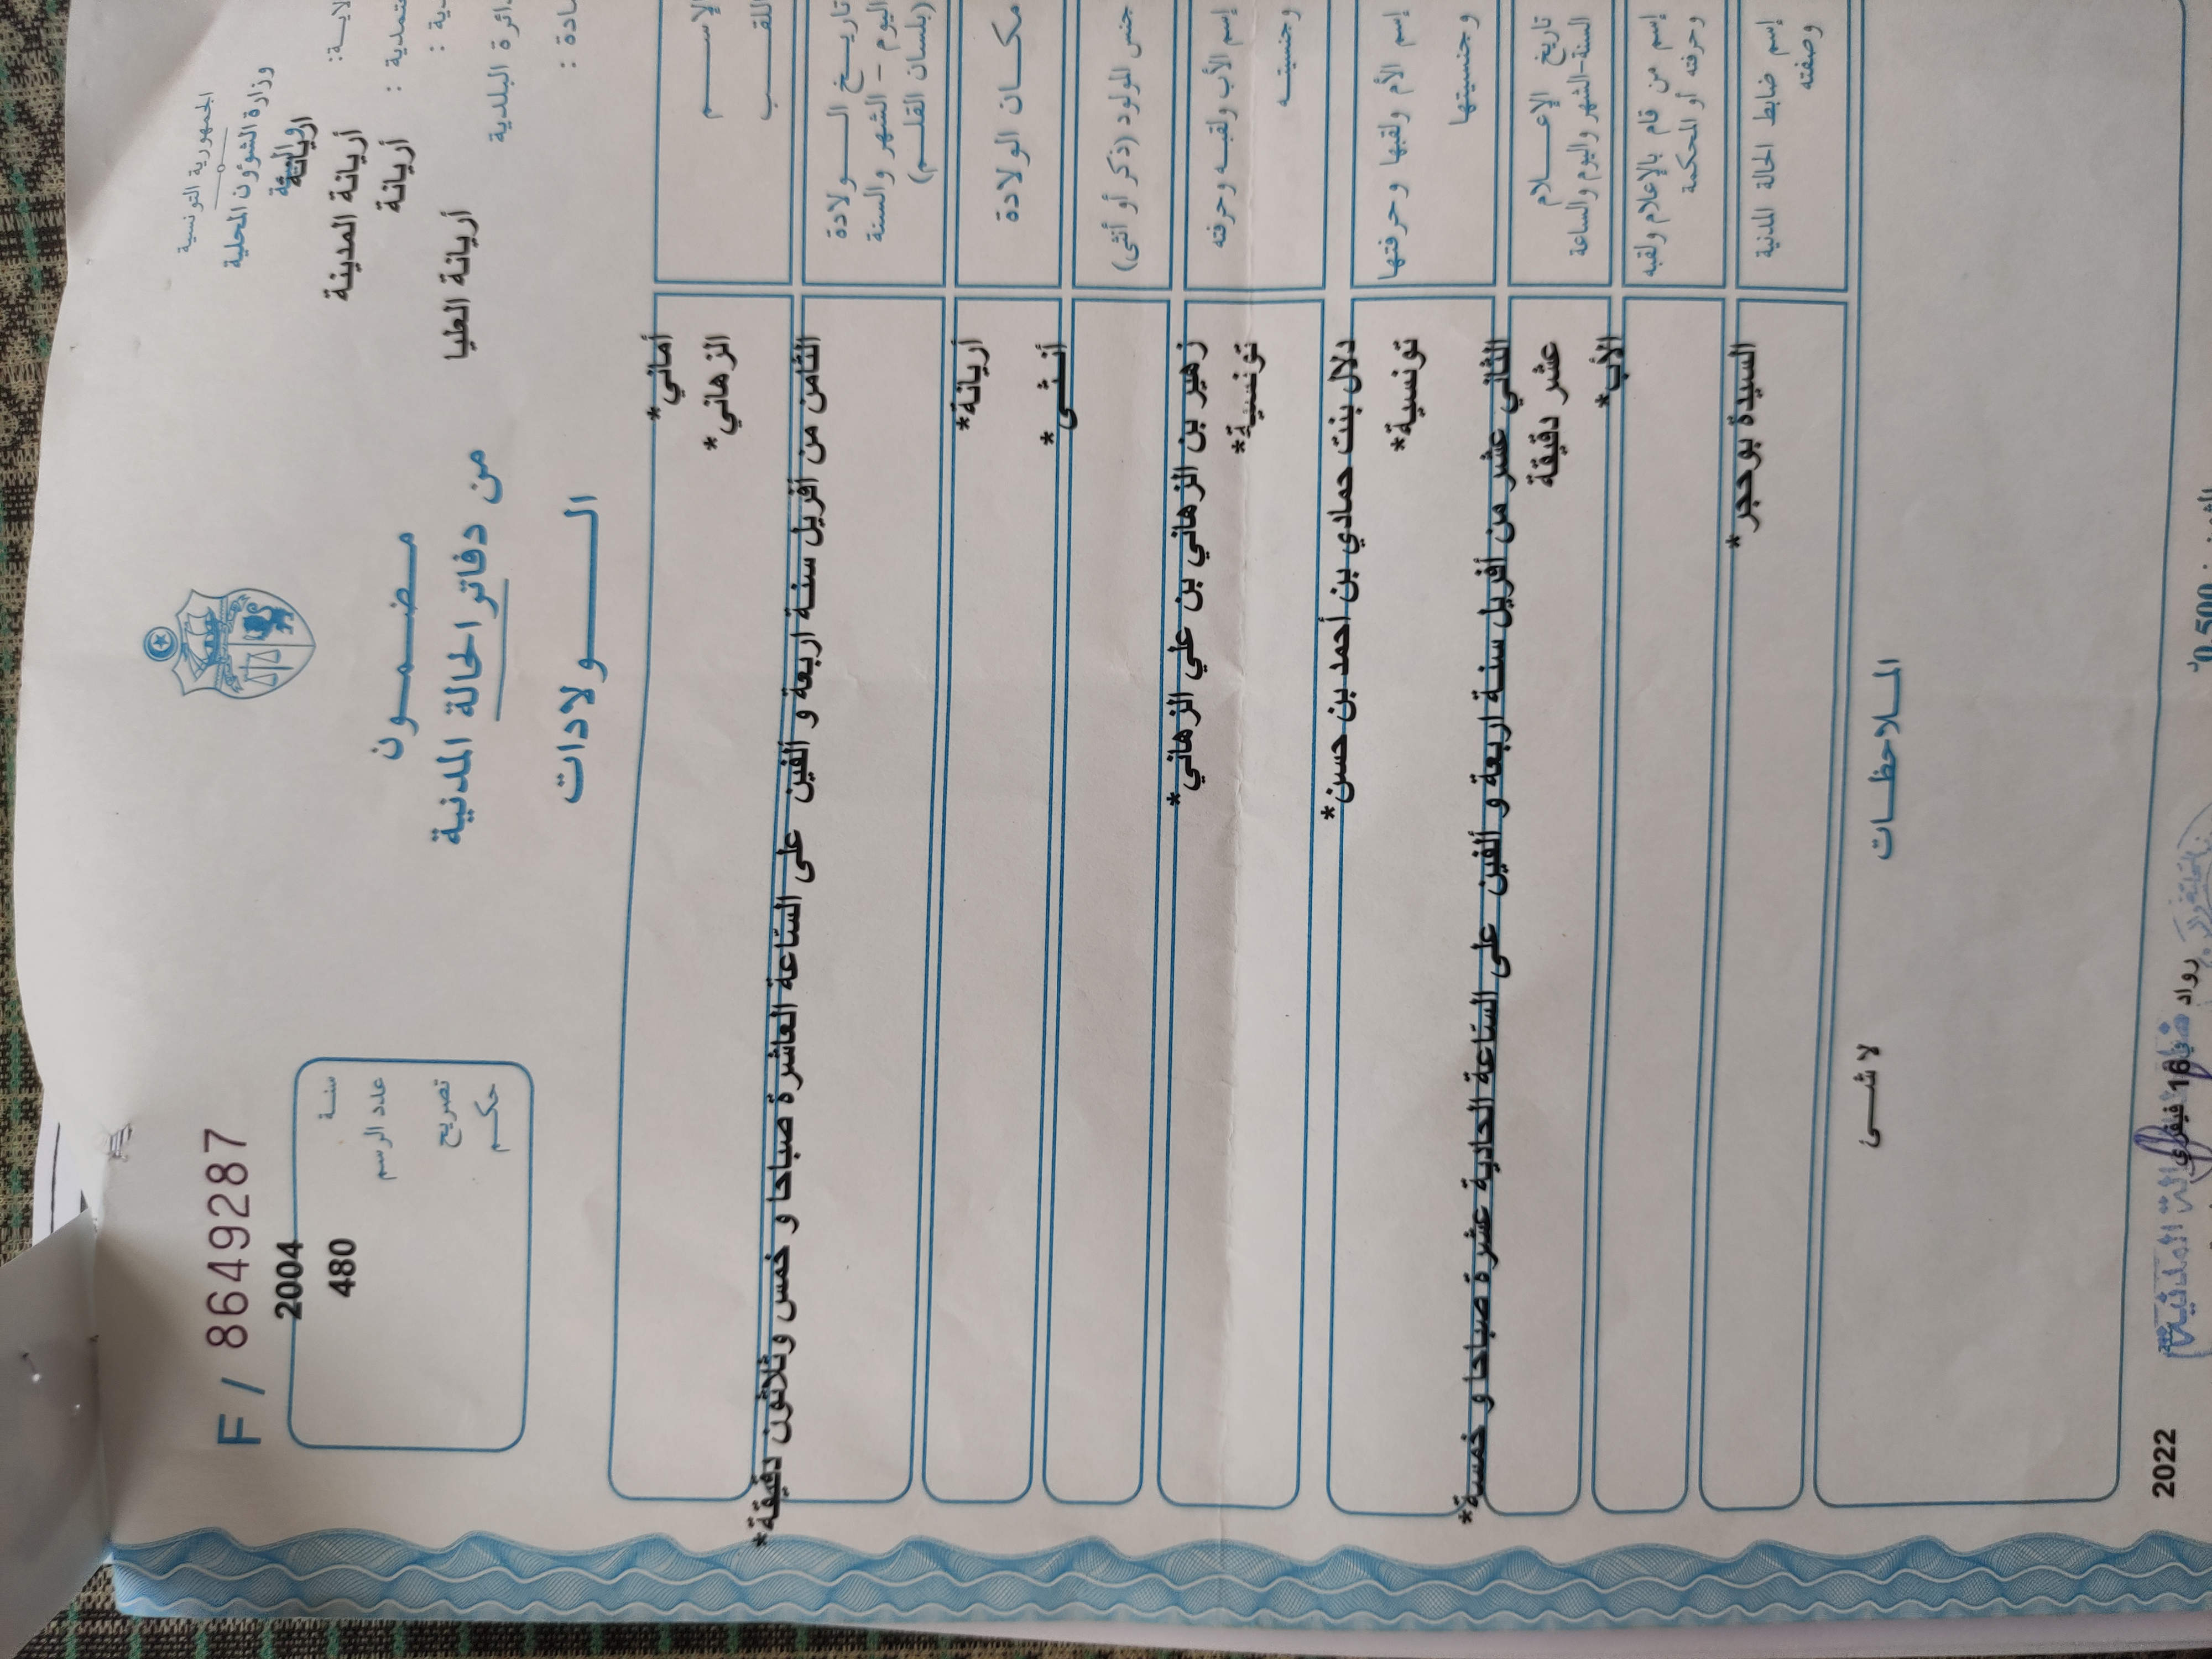 الجمهورية التونسية
وزارة الشؤون المحلية
والبيئة
أريانة
أريانة المدينة
أريانة
أريانة العليا
دائرة البلدية
F / 8649287
سنة 2004
عدد الرسم 480
تصريح
حكم
مضمون
من دفاتر الحالة المدنية
الولادات
الإسم
أماني*
اللقب
الزهاني*
تاريخ الولادة
اليوم - الشهر والسنة
(بلسان القلم)
الثامن من أفريل سنة اربعة و ألفين على الساعة العاشرة صباحا و خمس وثلاثون دقيقة*
مكان الولادة
أريانة*
جنس المولود (ذكر أو أنثى)
أنثى*
إسم الأب ولقبه وحرفته
زهير بن الزهاني بن علي الزهاني*
وجنسيته
تونسية*
إسم الأم ولقبها وحرفتها
دلال بنت حمادي بن أحمد بن حسن*
وجنسيتها
تونسية*
تاريخ الإعلام
السنة-الشهر واليوم والساعة
الثاني عشر من أفريل سنة اربعة و ألفين على الساعة الحادية عشرة صباحا و خمسة*
عشر دقيقة
إسم من قام بالإعلام ولقبه
وحرفته أو المحكمة
الأب*
إسم ضابط الحالة المدنية
وصفته
السيدة بوحجر*
الملاحظات
لا شئ
رواد 16 فيفري 2022
الحالة المدنية